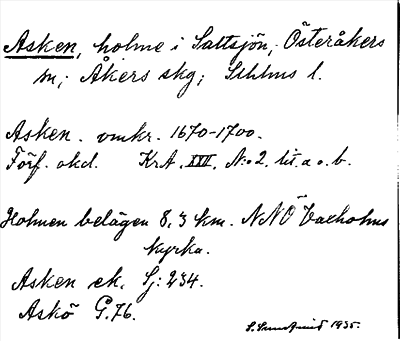 Asken, holme i Saltsjön; Österåkers
sn; Åkers skg; Sthlms l.
Asken. omkr. 1670-1700.
Förf. okd. KrA. XXV. N:o 2. lit. a o. b.
Holmen belägen 8,3 km. NNÖ Vaxholms
kyrka.
Asken ek. Sj: 234.
Askö G.76.
1935.